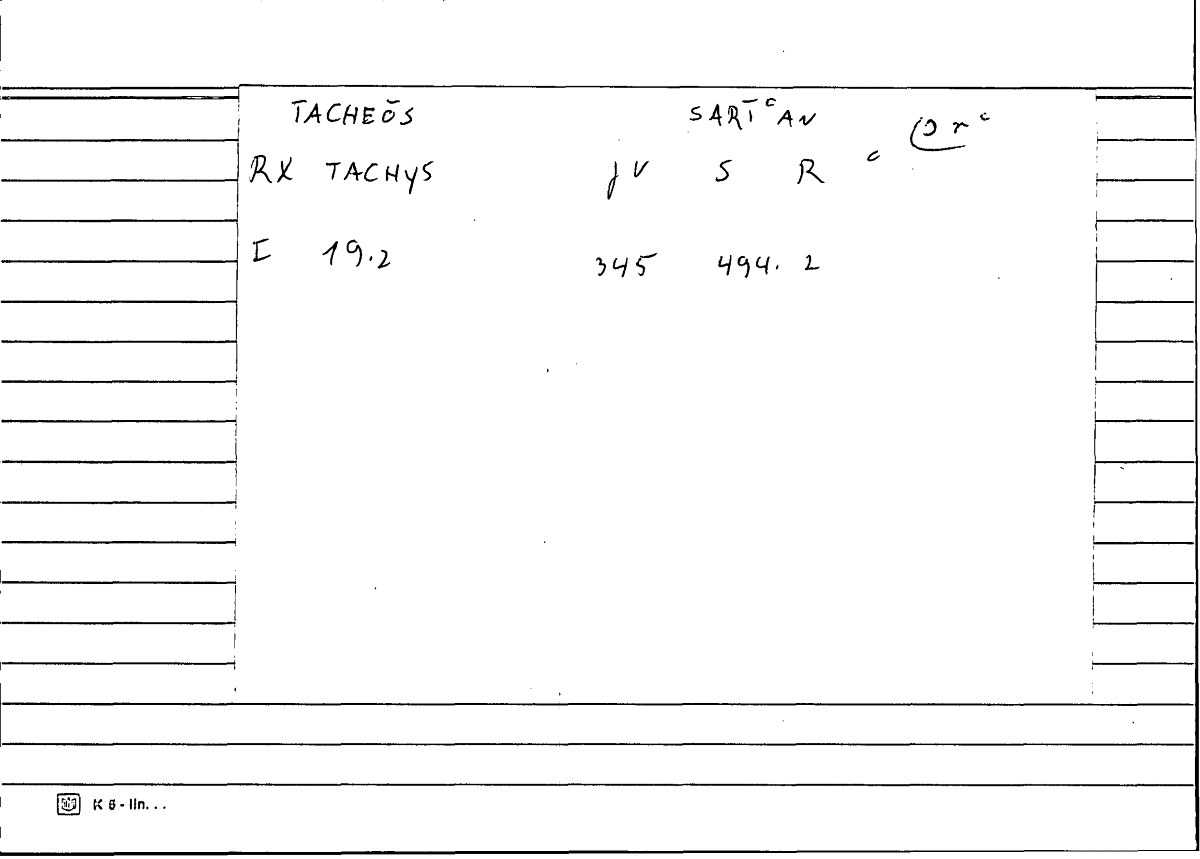 TACHEŌS SART͑AN
RX TACHYS JV S R
I 19.2 345 494. 2
K 6 - lin...